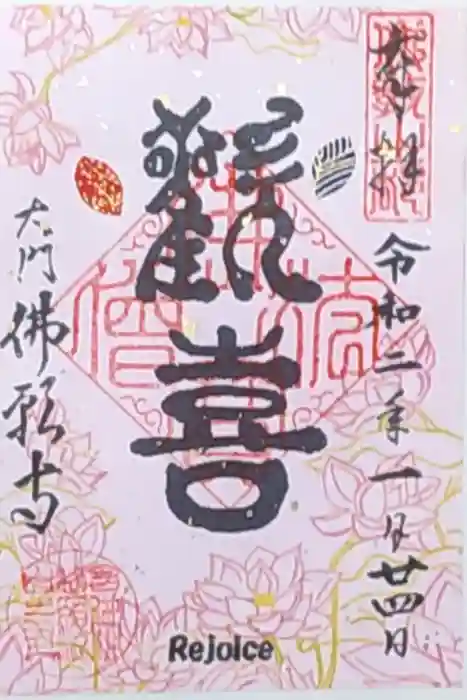 奉拝
令和二年一月廿四日
歡喜
大門
佛願寺
Rejoice